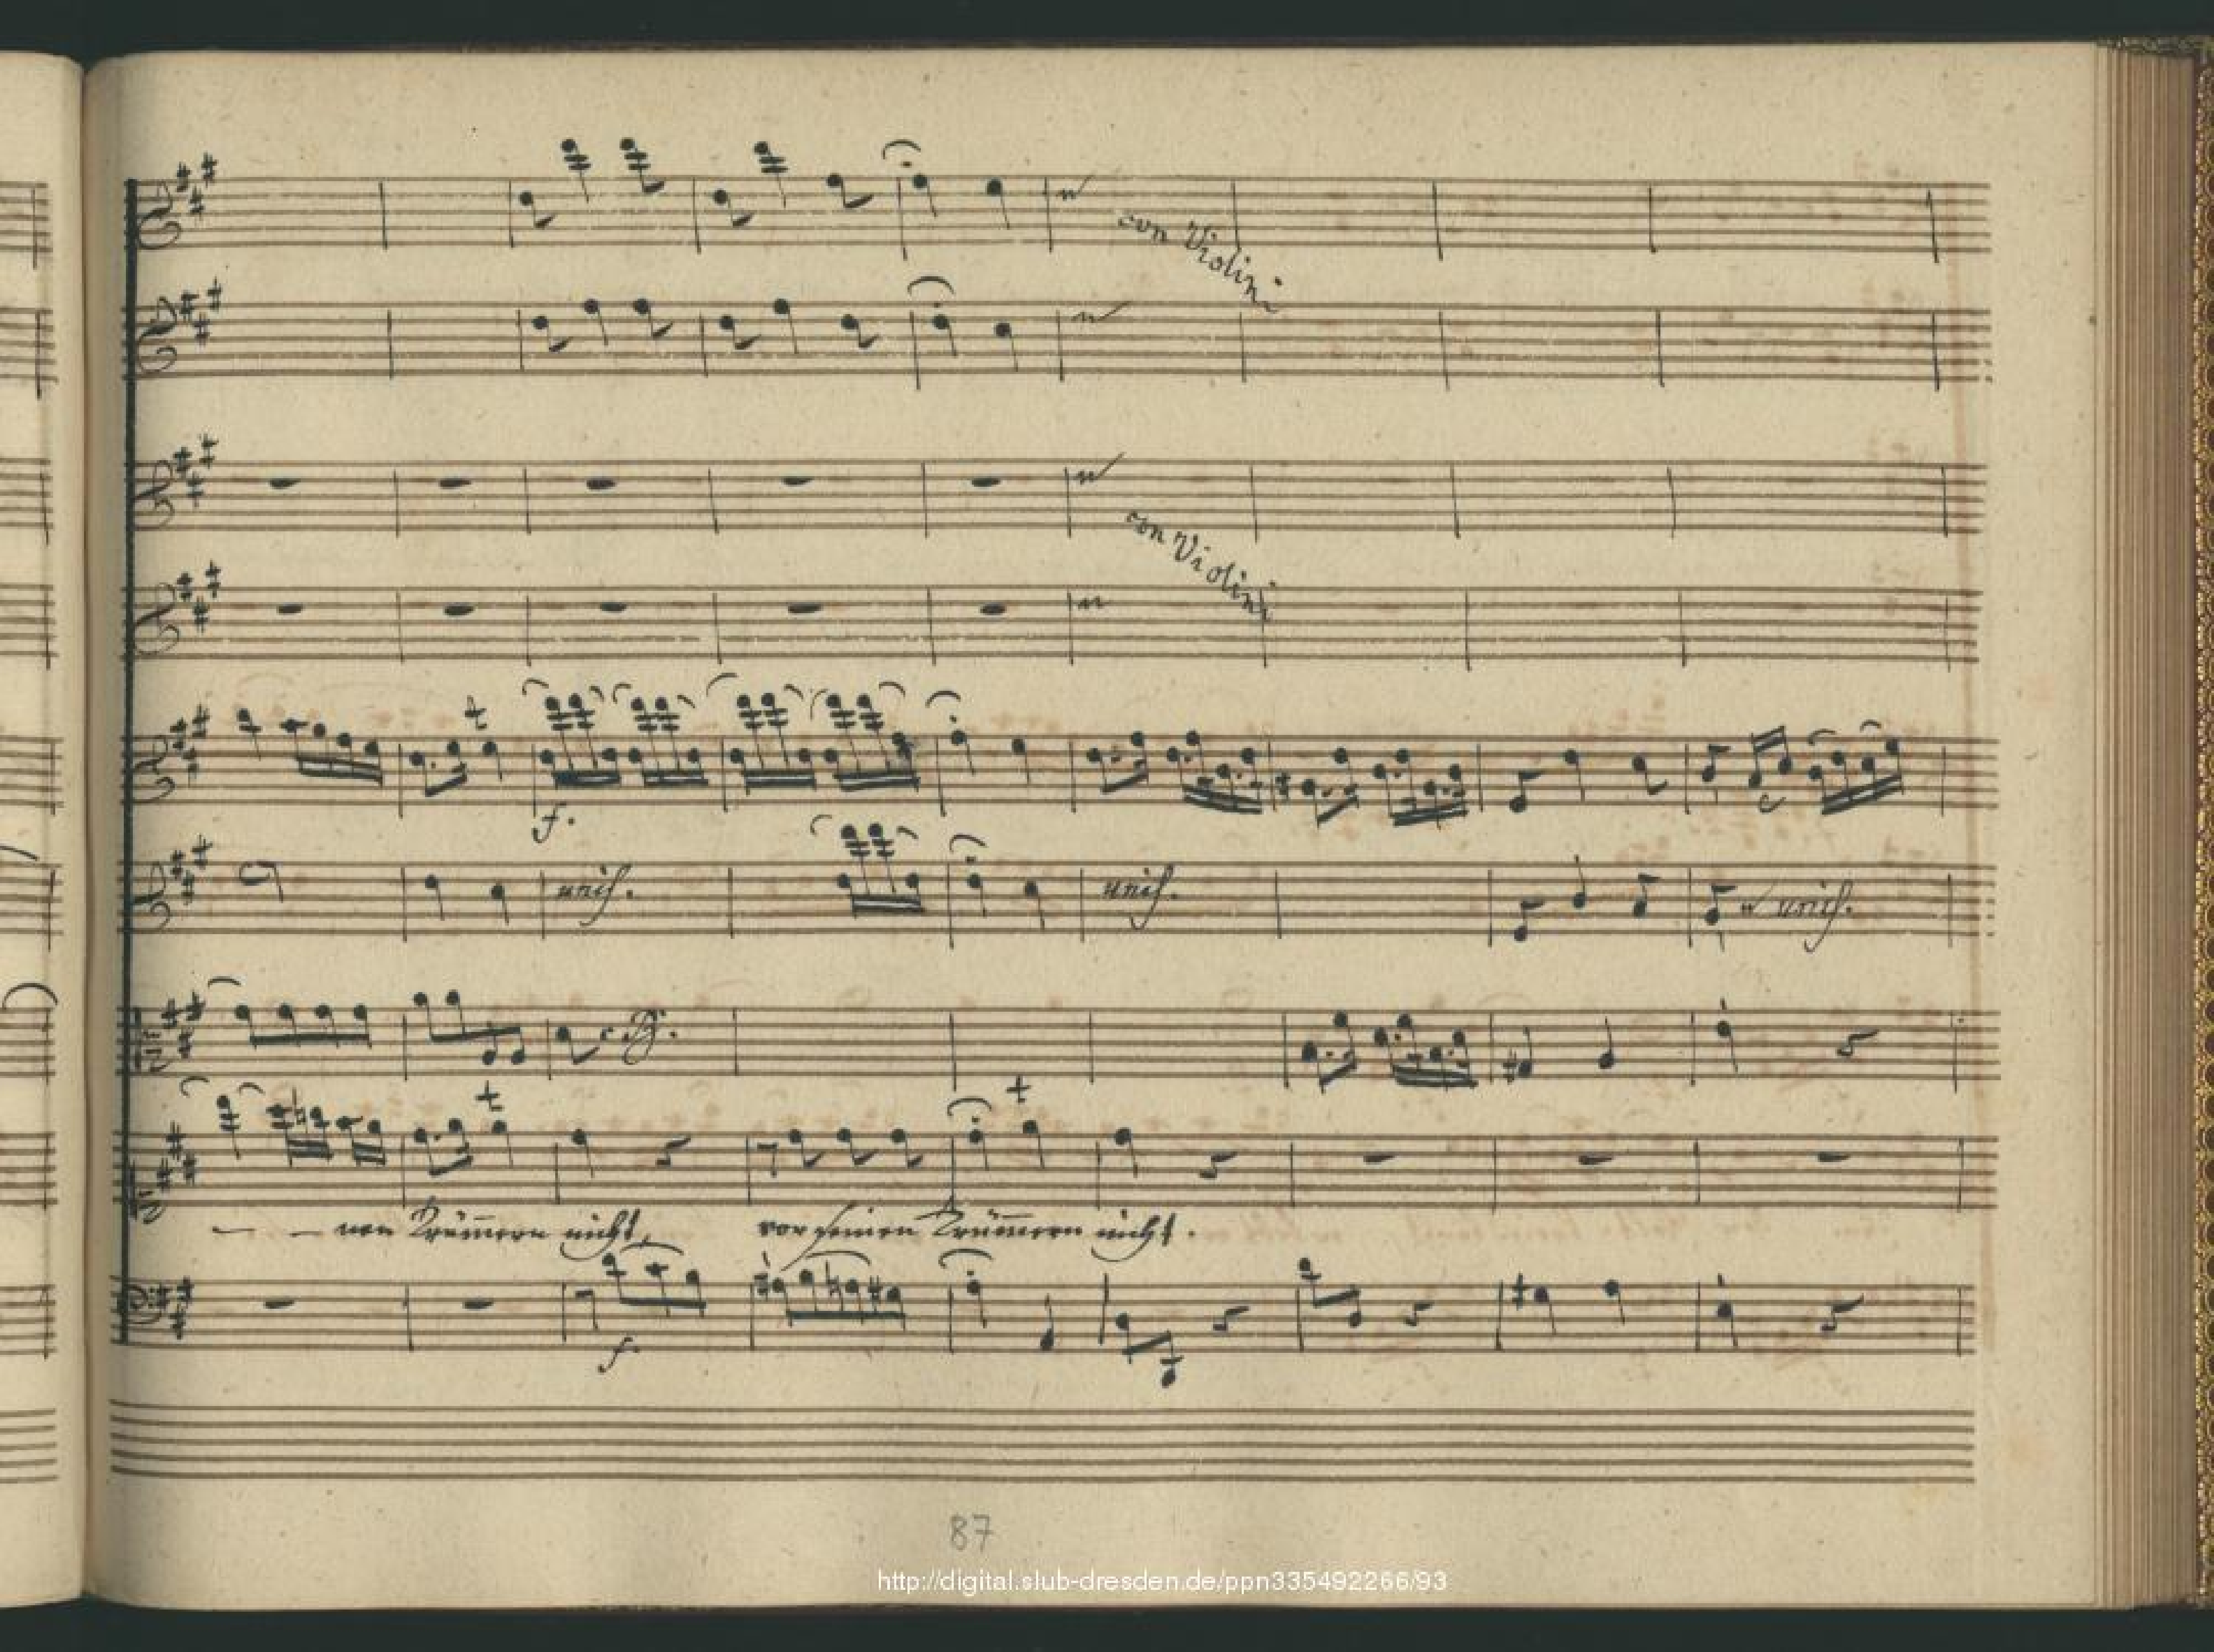 con Violini
con Violini
f.
unis.
unis.
unis.
- - nen Trüm̄ern nicht, vor seinen Trüm̄ern nicht.
f
87
http://digital.slub-dresden.de/ppn335492266/93